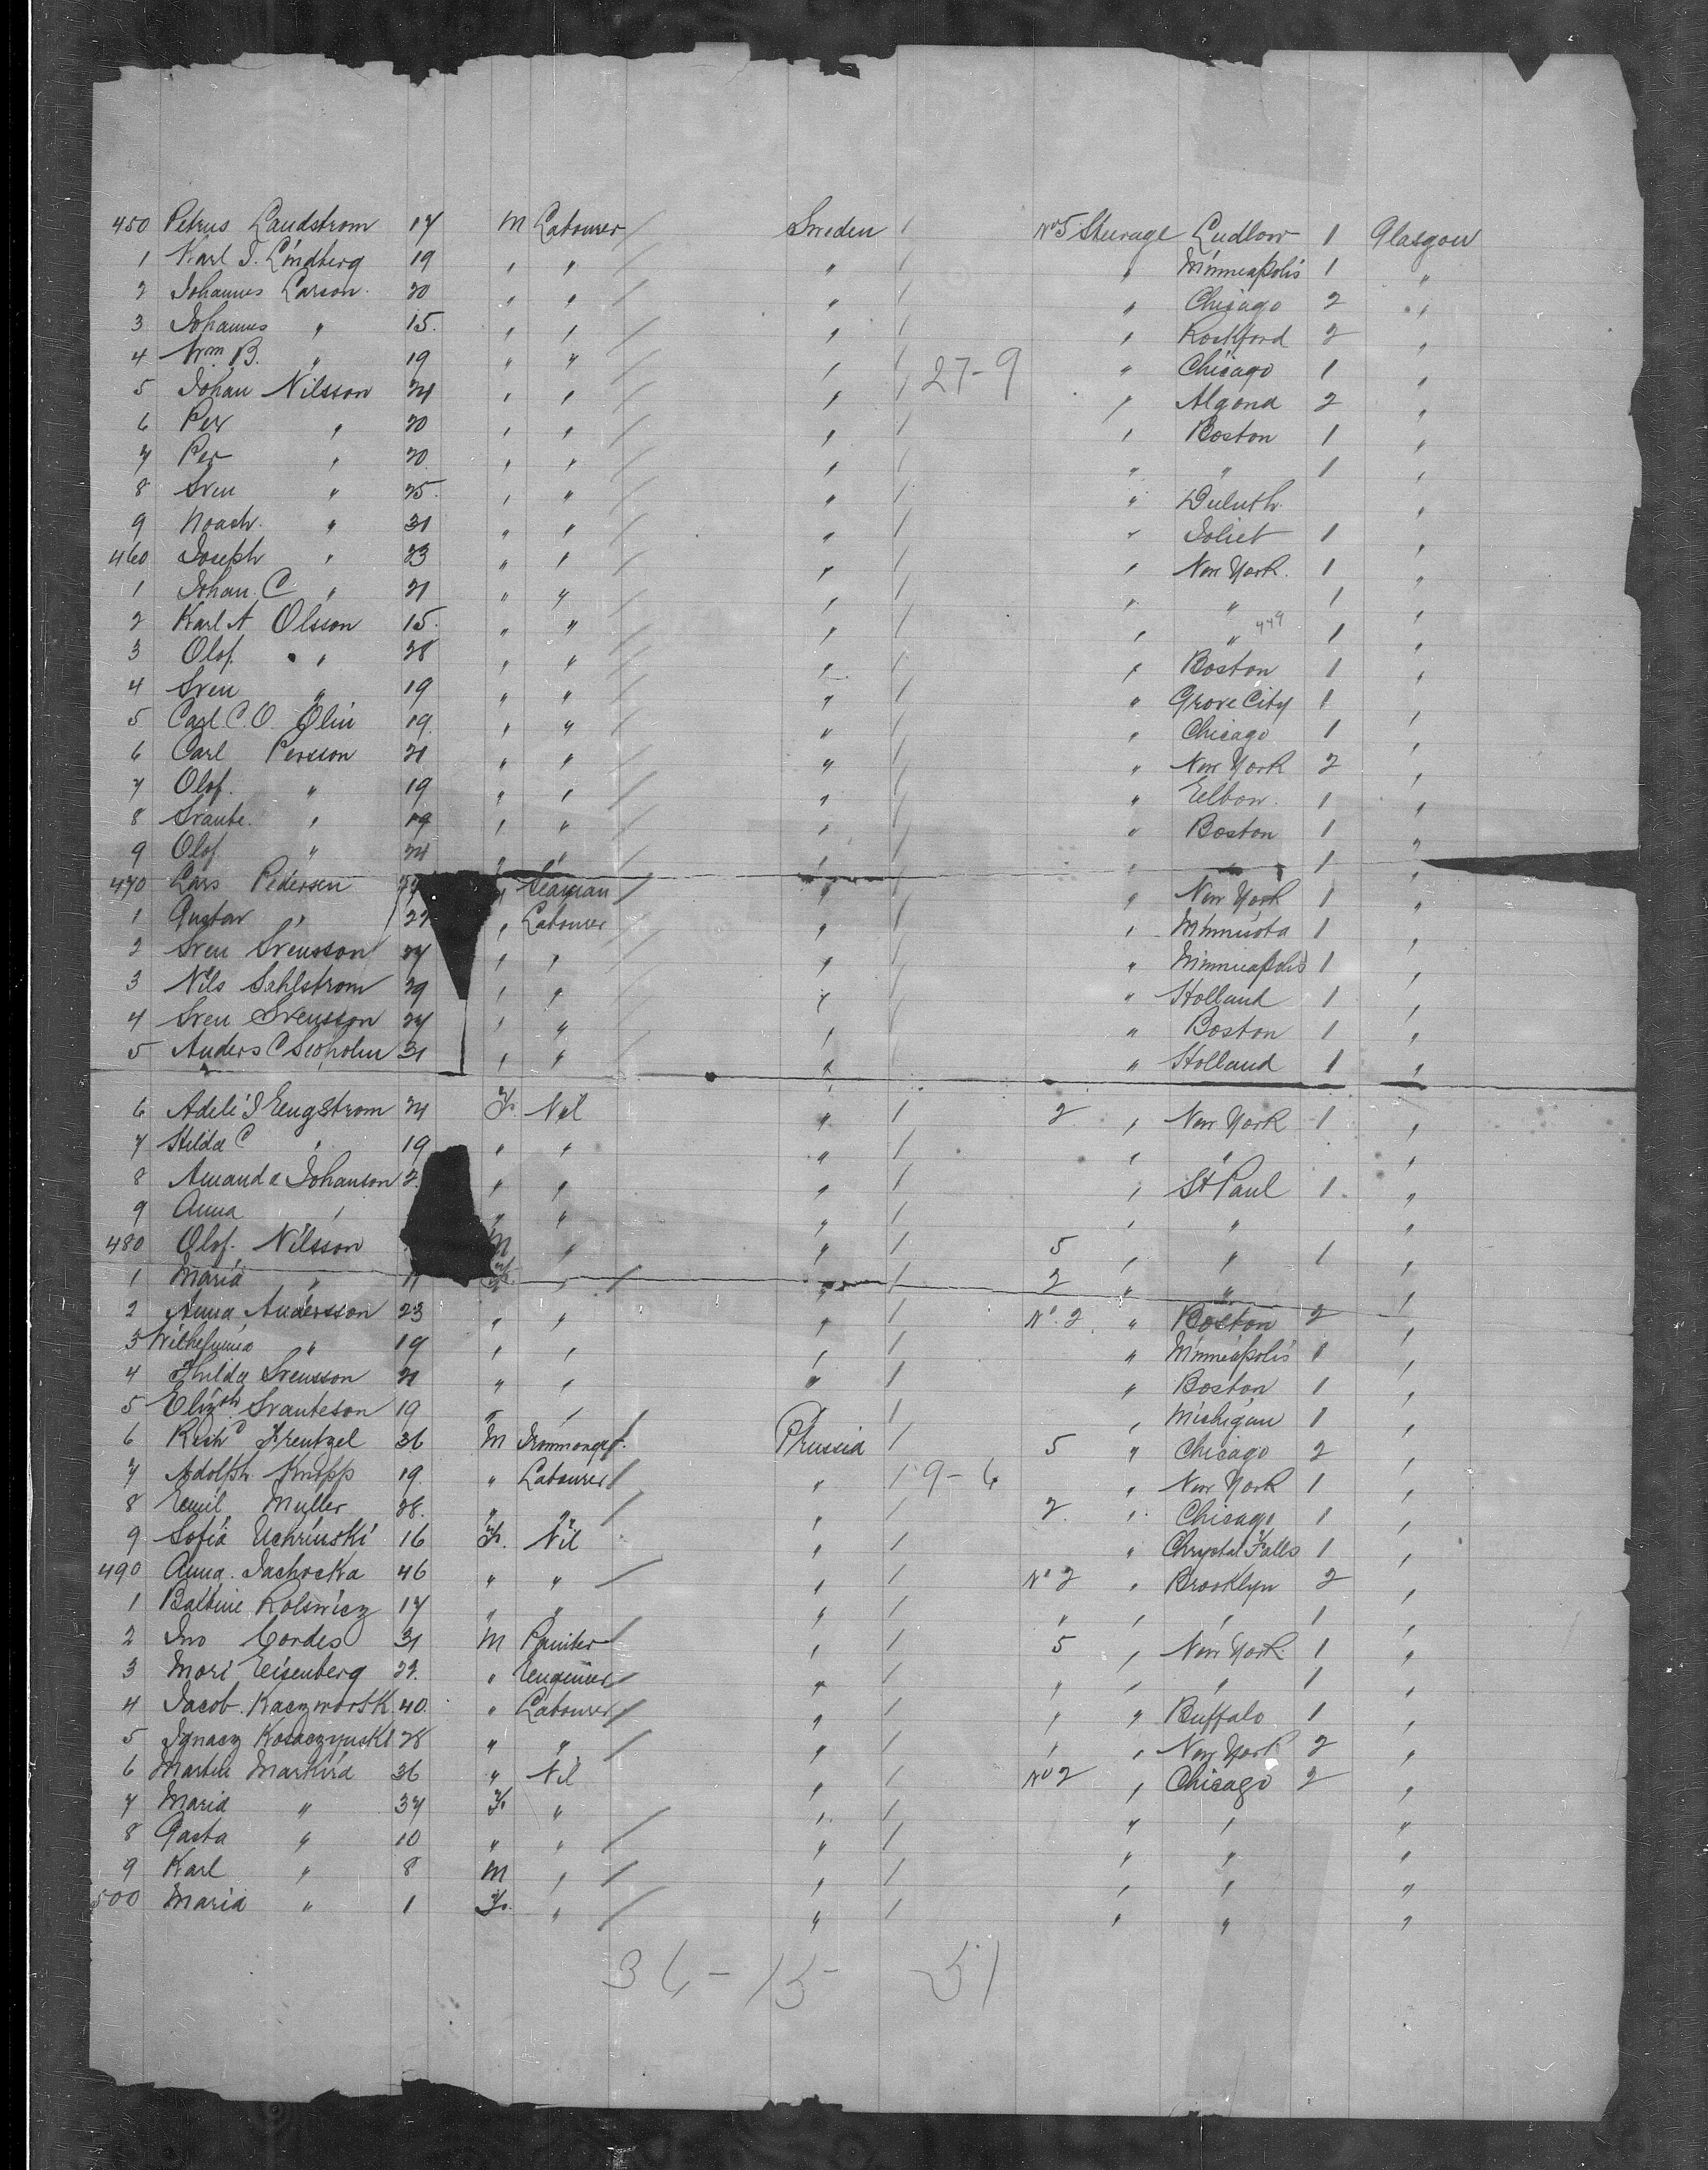 450 Petrus Landstrom 17 M Labourer / Sweden / No 5 Steerage Ludlow 1 Glasgow
1 Karl J. Lindberg 19 " " / " / " Minneapolis 1 "
2 Johannes Larson 20 " " / " / " Chicago 2 "
3 Johannes " 15 " " / " / " Rockford 2 "
4 Wm B. " 19 " " / " / 27-9 " Chicago 1 "
5 Johan Nilsson 24 " " / " / " Algona 2 "
6 Per " 20 " " / " / " Boston 1 "
7 Per " 20 " " / " / " " 1 "
8 Sven " 25 " " / " / " Duluth "
9 Noach " 31 " " / " / " Joliet 1 "
460 Joseph " 23 " " / " / " New York 1 "
1 Johan C " 21 " " / " / " " 1 "
2 Karl A Olsson 15 " " / " / " " 449 1 "
3 Olof " 28 " " / " / " Boston 1 "
4 Sven " 19 " " / " / " Grove City 1 "
5 Carl C. O. Olin 19 " " / " / " Chicago 1 "
6 Carl Persson 21 " " / " / " New York 2 "
7 Olof " 19 " " / " / " Elbow 1 "
8 Svante " 19 " " / " / " Boston 1 "
9 Olof " 24 " " / " / " " 1 "
470 Lars Pedersen " Seaman / " / " New York 1 "
1 Gustav " 22 " Labourer / " / " Minnesota 1 "
2 Sven Svensson 24 " " / " / " Minneapolis 1 "
3 Nils Sahlstrom 29 " " / " / " Holland 1 "
4 Sven Svensson 24 " " / " / " Boston 1 "
5 Anders C 31 " " " " Holland 1 "
6 Adele J Engstrom 24 F. Nil " / 2 " New York 1 "
7 Hilda C " 19 " " " / " " "
8 Amanda Johanson " " " / " St Paul 1 "
9 Anna " " " " / " " "
480 Olof Nilsson M " " / 5 " " 1 "
1 Maria " 11 F " / " / 2 " " "
2 Anna Andersson 23 " " " / No. 2 " Boston 2 "
3 Wilhelmina " 19 " " " / " Minneapolis 1 "
4 Hilda Svensson 21 " " " / " Boston 1 "
5 Elizth Svanteson 19 " " " / " Michigan 1 "
6 Richd Frentzel 36 M Ironmonger / Prussia / 5 " Chicago 2 "
7 Adolph Knopp 19 " Labourer / " / 9-6 " New York 1 "
8 Emil Muller 28 " " / " / 2 " Chicago 1 "
9 Sofia Uchrinski 16 F. Nil " / " Chrystal Falls 1 "
490 Anna Jachocka 46 " " / " / No 2 " Brooklyn 2 "
1 Balbine Rolewicz 17 " " " / " " " 1 "
2 Jno Cordes 31 M Painter / " / 5 " New York 1 "
3 Mori Eisenberg 22 " Engineer / " / " " " 1 "
4 Jacob Kaczmorsk 40 " Labourer / " / " " Buffalo 1 "
5 Ignacz 28 " " / " / " " New York 2 "
6 Martin Markira 36 " Nil " / No 2 " Chicago 2 "
7 Maria " 37 F. " " / " " "
8 Gasta " 10 " " / " / " " "
9 Karl " 8 M " / " / " " "
500 Maria " 1 F. " / " / " " "
36-15 51